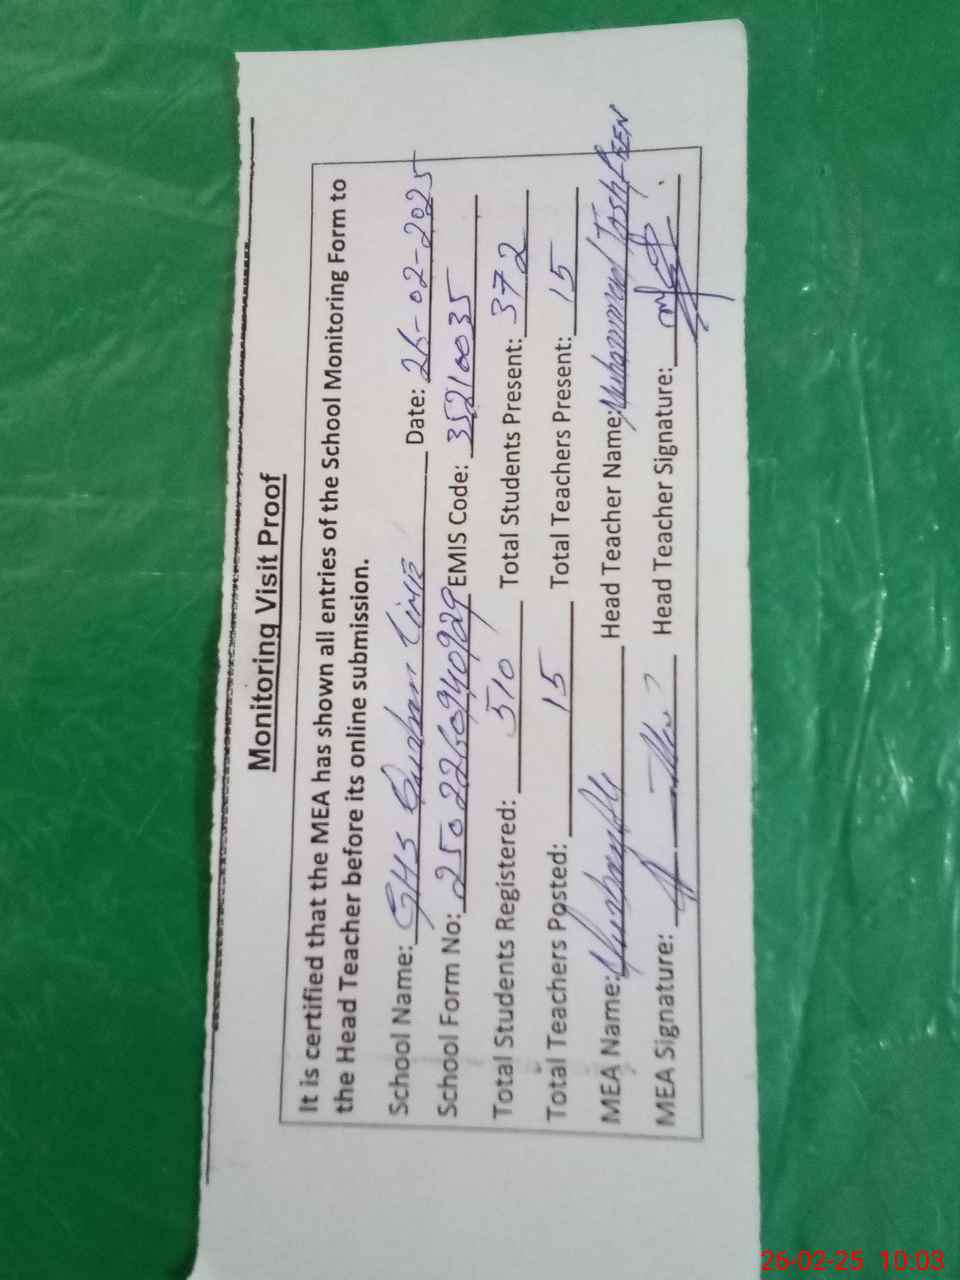 Monitoring Visit Proof
It is certified that the MEA has shown all entries of the School Monitoring Form to
the Head Teacher before its online submission.
School Name: GHS Date: 26-02-2025
School Form No: 2502260940929 EMIS Code: 35210035
Total Students Registered: 510 Total Students Present: 372
Total Teachers Posted: 15 Total Teachers Present: 15
MEA Name: Head Teacher Name: Muhammad
MEA Signature: Head Teacher Signature:
26-02-25 10:03